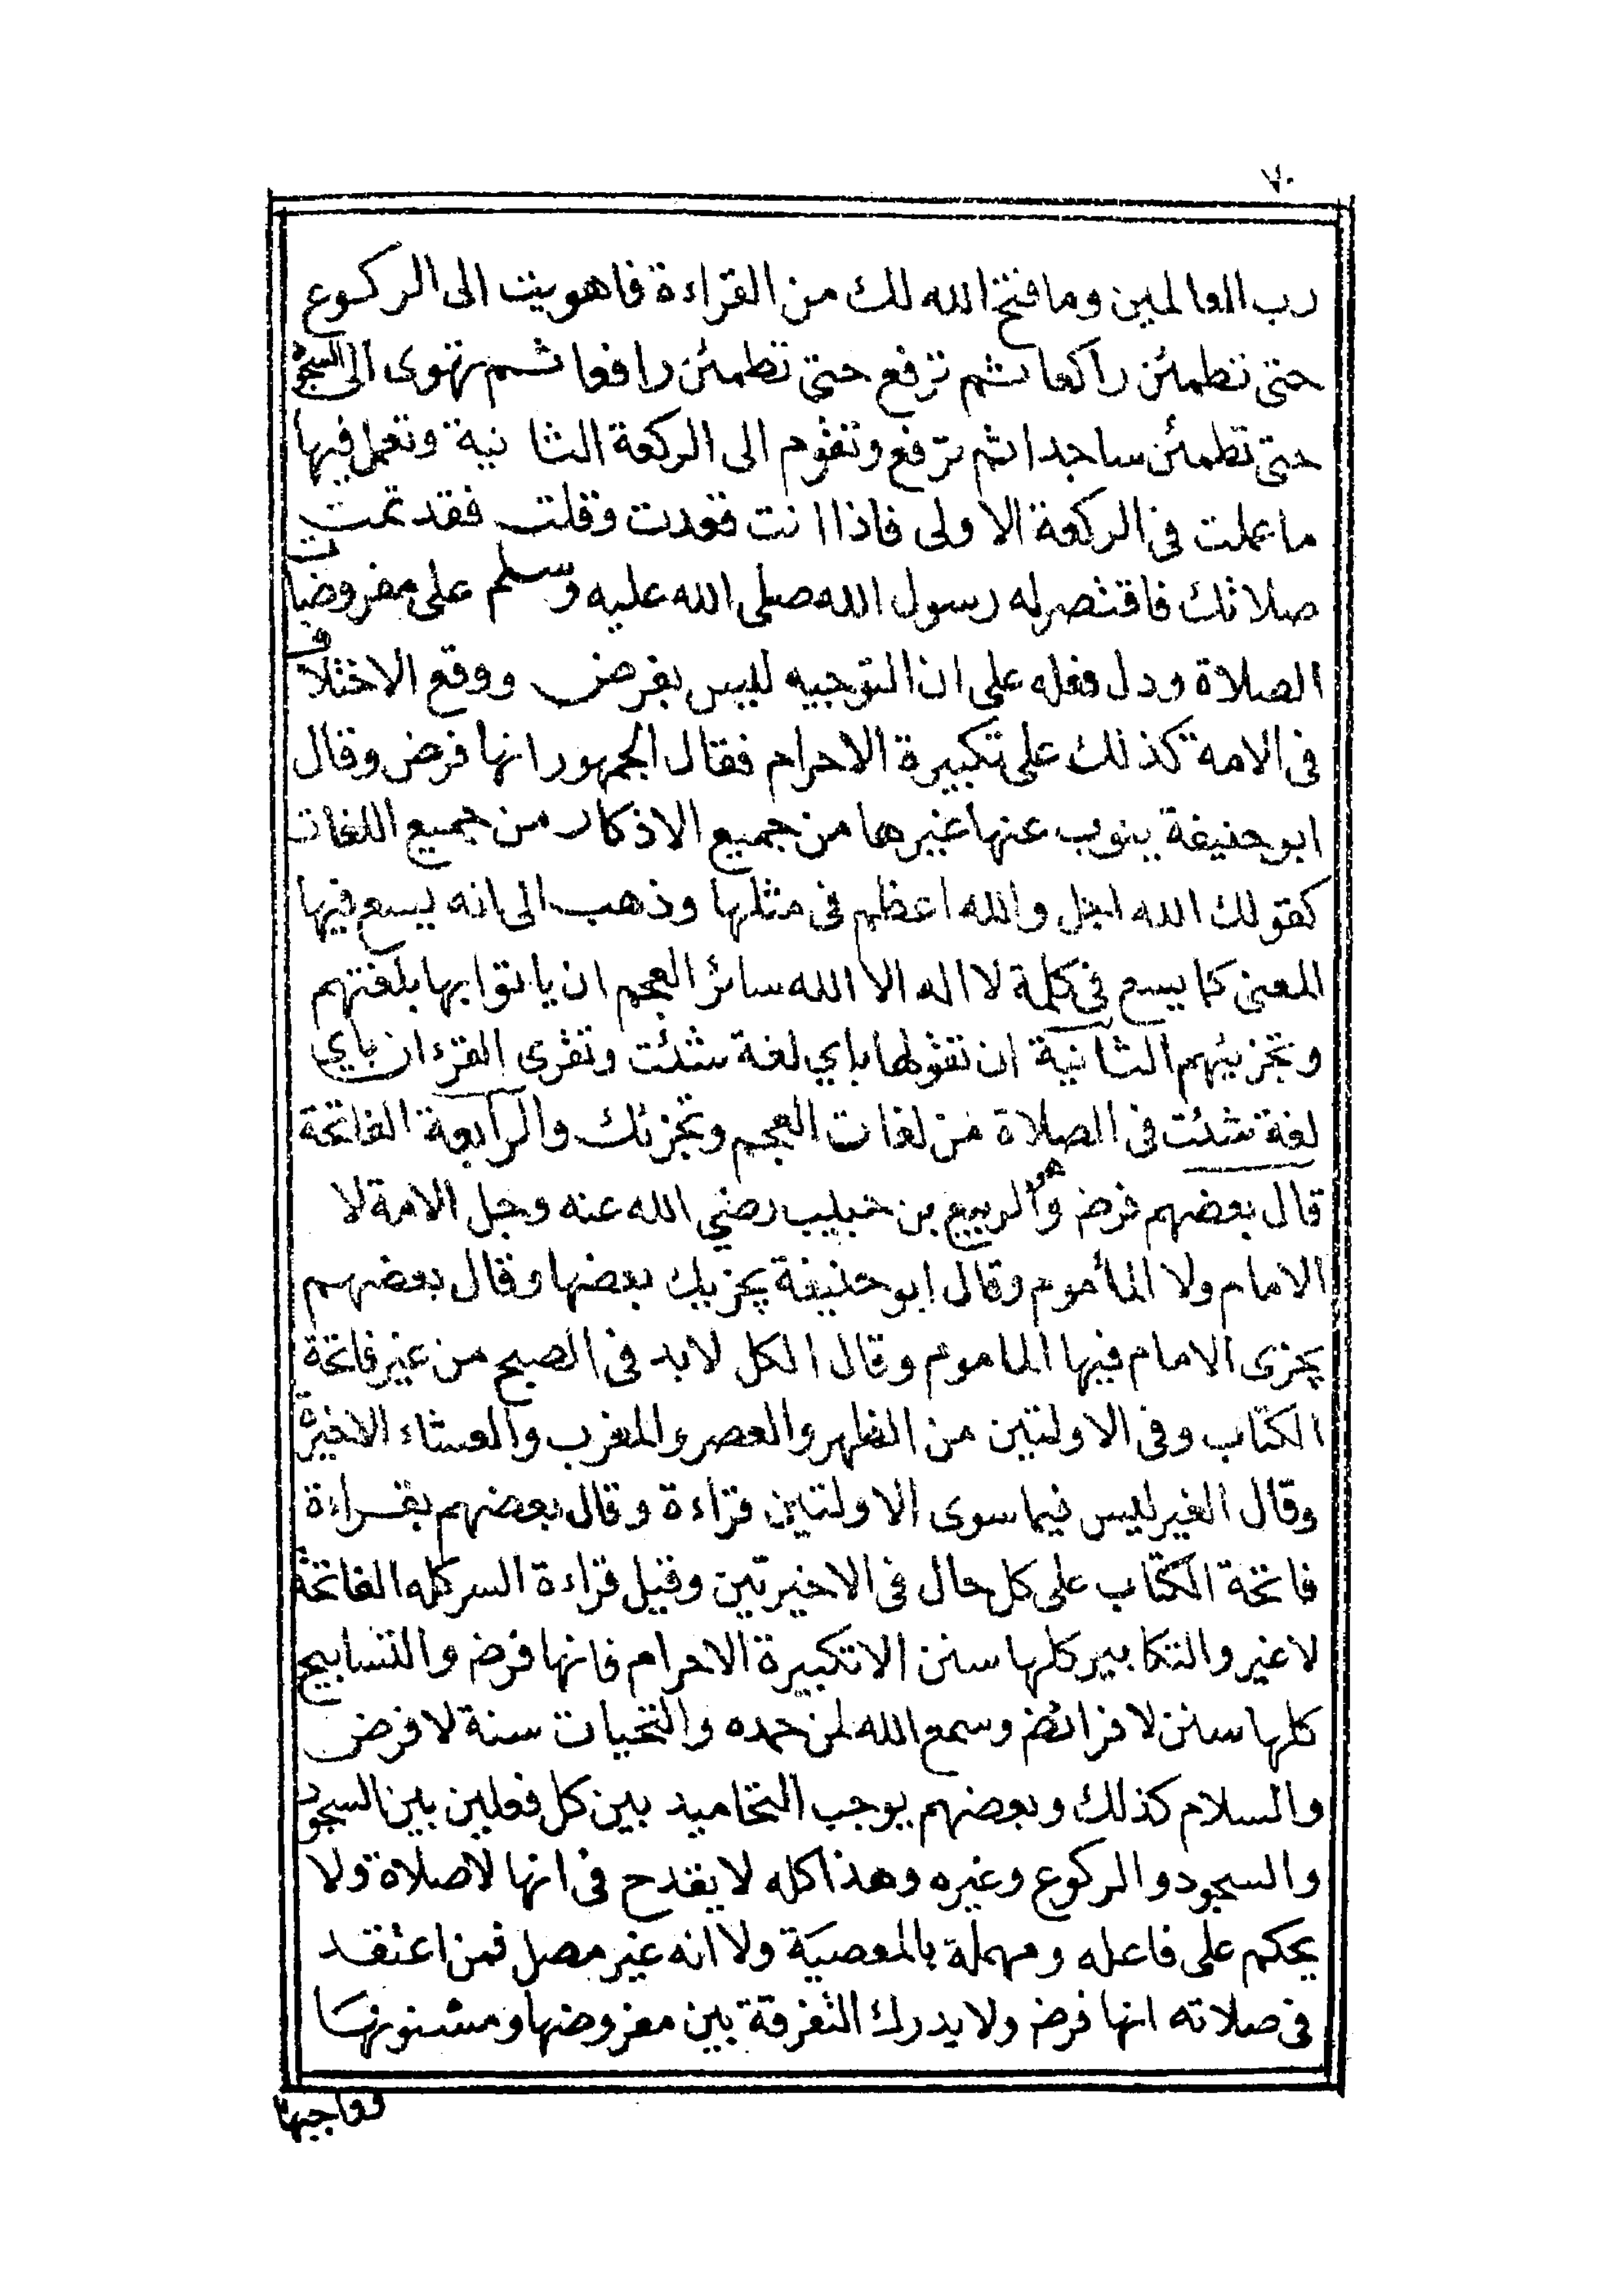 ٧٠
رب العالمين وما فتح الله لك من القراءة فاهويت الى الركوع
حتى تطمئن راكعا ثم ترفع حتى تطمئن رافعا ثم تهوى الى السجود
حتى تطمئن ساجدا ثم ترفع وتقوم الى الركعة الثانية وتعمل فيها
ما عملت في الركعة الاولى فاذا انت قعدت وقلت فقد تمت
صلاتك فاقتصر له رسول الله صلى الله عليه وسلم على مفروضات
الصلاة ودل فعله على ان التوجيه ليس بفرض ووقع الاختلاف
فى الامة كذلك على تكبيرة الاحرام فقال الجمهور انها فرض وقال
ابو حنيفة ينوب عنها غيرها من جميع الاذكار من جميع اللغات
كقولك الله اجل والله اعظم فى مثلها وذهب الى انه يسع فيها
المعنى كما يسع فى كلمة لا اله الا الله سائر العجم ان ياتوا بها بلغتهم
وتجزيئهم الثانية ان تقولها باي لغة شئت وتقرى القرءان باي
لغة شئت فى الصلاة من لغات العجم وتجزئك والرابعة الفاتحة
قال بعضهم فرض وهو الربيع بن حبيب رضي الله عنه وجل الامة لا
الامام ولا المأموم وقال ابو حنيفة يجزيك بعضها وقال بعضهم
يجزى الامام فيها الماموم وقال الكل لابد فى الصبح من غير فاتحة
الكتاب وفى الاولتين من الظهر والعصر والمغرب والعشاء الاخيرة
وقال الغير ليس فيما سوى الاولتين قراءة وقال بعضهم بقراءة
فاتحة الكتاب على كل حال فى الاخيرتين وقيل قراءة السر كله الفاتحة
لا غير والتكابير كلها سنن الا تكبيرة الاحرام فانها فرض والتسابيح
كلها سنن لا فرائض وسمع الله لمن حمده والتحيات سنة لا فرض
والسلام كذلك وبعضهم يوجب التحاميد بين كل فعلين بين السجود
والسجود والركوع وغيره وهذا كله لا يقدح فى انها لا صلاة ولا
يحكم على فاعله ومهملة بالمعصية ولا انه غير مصل فمن اعتقد
فى صلاته انها فرض ولا يدرك التفرقة بين مفروضها ومسنونها
وواجبها